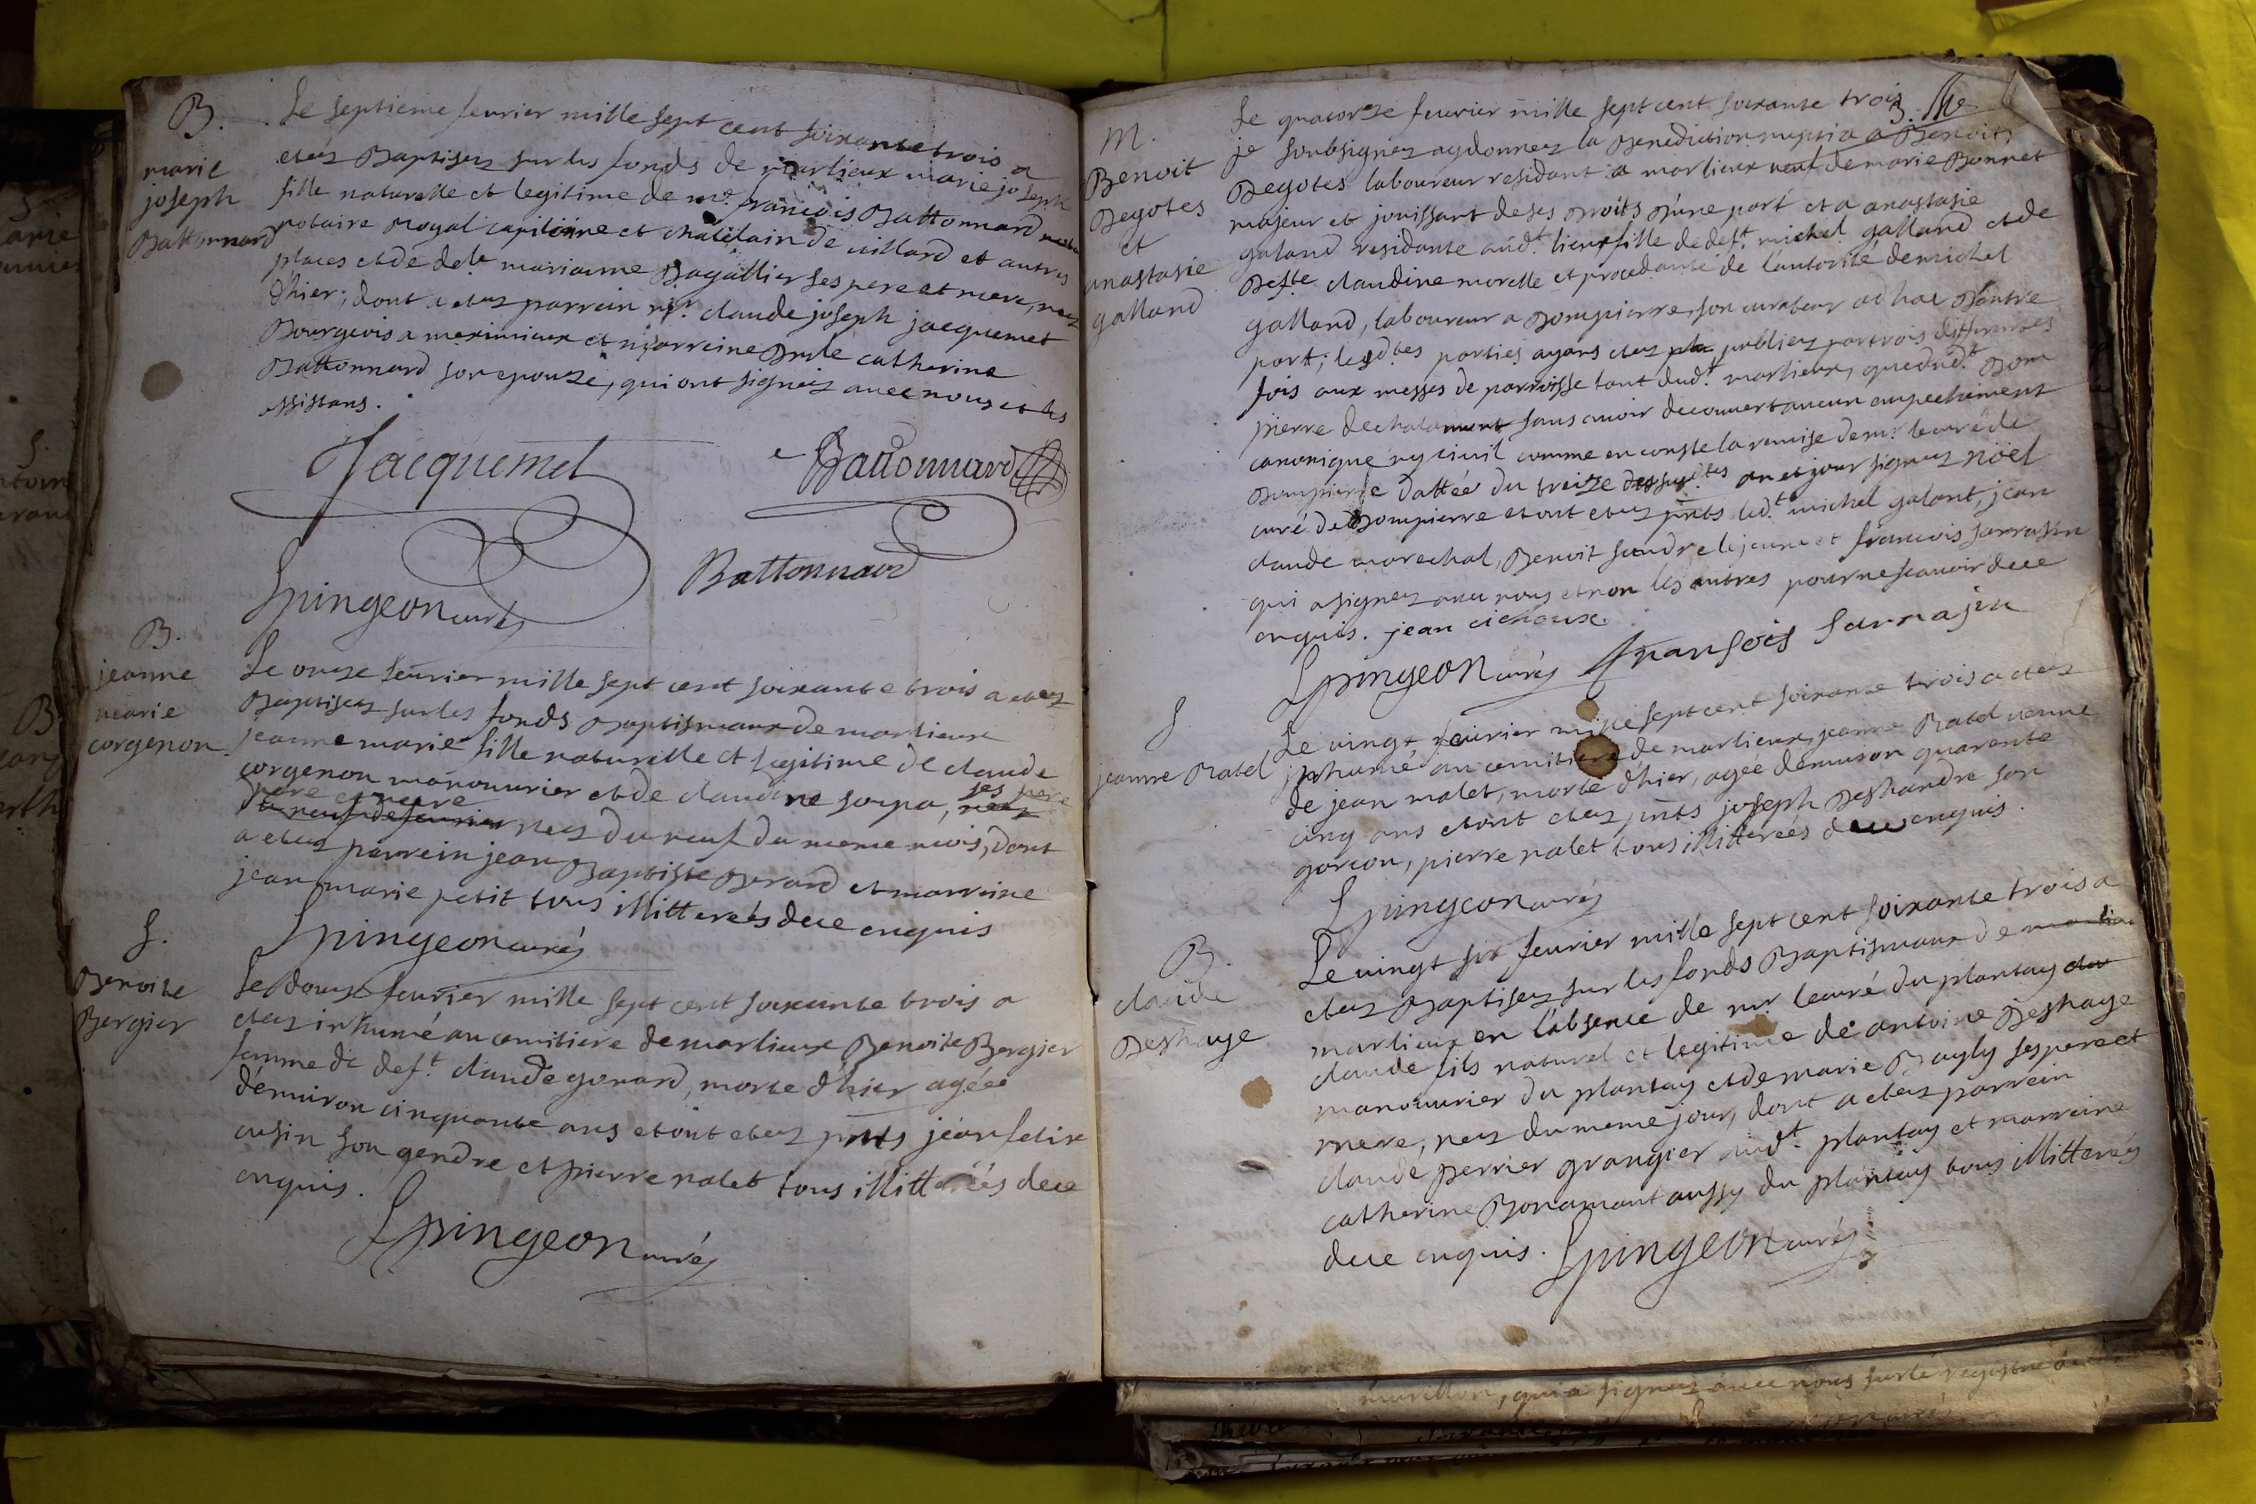 B.
marie
joseph
Battonnard
Le septieme feurier mille sept cent soixante trois a
etez Baptisez sur les fonds de marlieux marie joseph
fille naturelle et legitime de mr. francois Battonnard
notaire Royal capitaine et chatelain de uillard et autres
places et de delle marianne Bagallier ses pere et mere, nez
d'hier; dont a etez parrein mr. claude joseph jacquemet
Bourgeois a meximieux et marreine Dlle catherine
Battonnard son epouze, qui ont signez auec nous et les
assistans.
Jacquemet
Battonnard
Battonnard
Spingeon curéz
B.
jeanne
marie
corgenon
Le onze feurier mille sept cent soixante trois a etez
Baptisez sur les fonds Baptismaux de marlieux
jeanne marie fille naturelle et legitime de claude
corgenon manouurier et de claudine soupa, ses pere
pere et mere
nez du neuf du meme mois, dont
a etez parrein jean Baptiste Berard et marreine
jean marie petit tous illitterés de ce enquis
Spingeon curéz
S.
Benoite
Bergier
Le douze feurier mille sept cent soixante trois a
etez inhumé au cemitiere de marlieux Benoite Bergier
femme de deft. claude gonard, morte d'hier agéé
d'enuiron cinquante ans et ont etez pnts jean felix
cusin son gendre et pierre nalet tous illitterés de ce
enquis.
Spingeon curéz
3.
M.
Benoit
Degotes
et
anastasie
galland
Le quatorze feurier mille sept cent soixante trois
je soubsignez ay donnez la Benediction nuptia a Benoit
Degotes laboureur residant a marlieux ueuf de marie Bonnet
majeur et jouissant de ses Droits d'une part et a anastasie
galand residante audt. lieux fille de deft. michel galland et de
Defte claudine morelle et procedante de l'autorité de michel
galland, laboureur a Dompierre son curateur ad hac d'autre
part; lesdtes parties ayans etez publiez par trois differentes
fois aux messes de parroisse tant dudt. marlieux, que dudt. Dom
pierre de chalamont sans auoir decouuert aucun empechement
canonique ny ciuil comme en conste la remise de mr. le curé de
Dompierre dattéé du treize des susdtes an et jour signez nöel
curé de Dompierre et ont etez pnts ledt. michel galant, jean
claude marechal, Benoit sandre le jeune et francois sarrasin
qui a signez auec nous et non les autres pour ne scauoir de ce
enquis. jean
Spingeon curéz fransois sarrasin
S
jeanne Ratel
Le uingt feurier mille sept cent soixante trois a etez
inhumé au cemitiere de marlieux jeanne Ratel ueuue
de jean malet, morte d'hier, agée d'enuiron quarante
cinq ans et ont etez pnts joseph Deshandre son
garcon, pierre nalet tous illitterés de ce enquis.
Spingeon curéz
B.
claude
Deshaye
Le uingt six feurier mille sept cent soixante trois a
etez Baptisez sur les fonds Baptismaux de
marlieux en l'absence de mr. le curé du plantay
claude fils naturel et legitime de antoine Deshaye
manouurier du plantay et de marie Bayly ses pere et
mere, nez du meme jour, dont a etez parrein
claude perrier grangier audt. plantay et marreine
catherine Bonamant aussy du plantay tous illitterés
de ce enquis. Spingeon curéz
qui a signez auec nous sur le registre